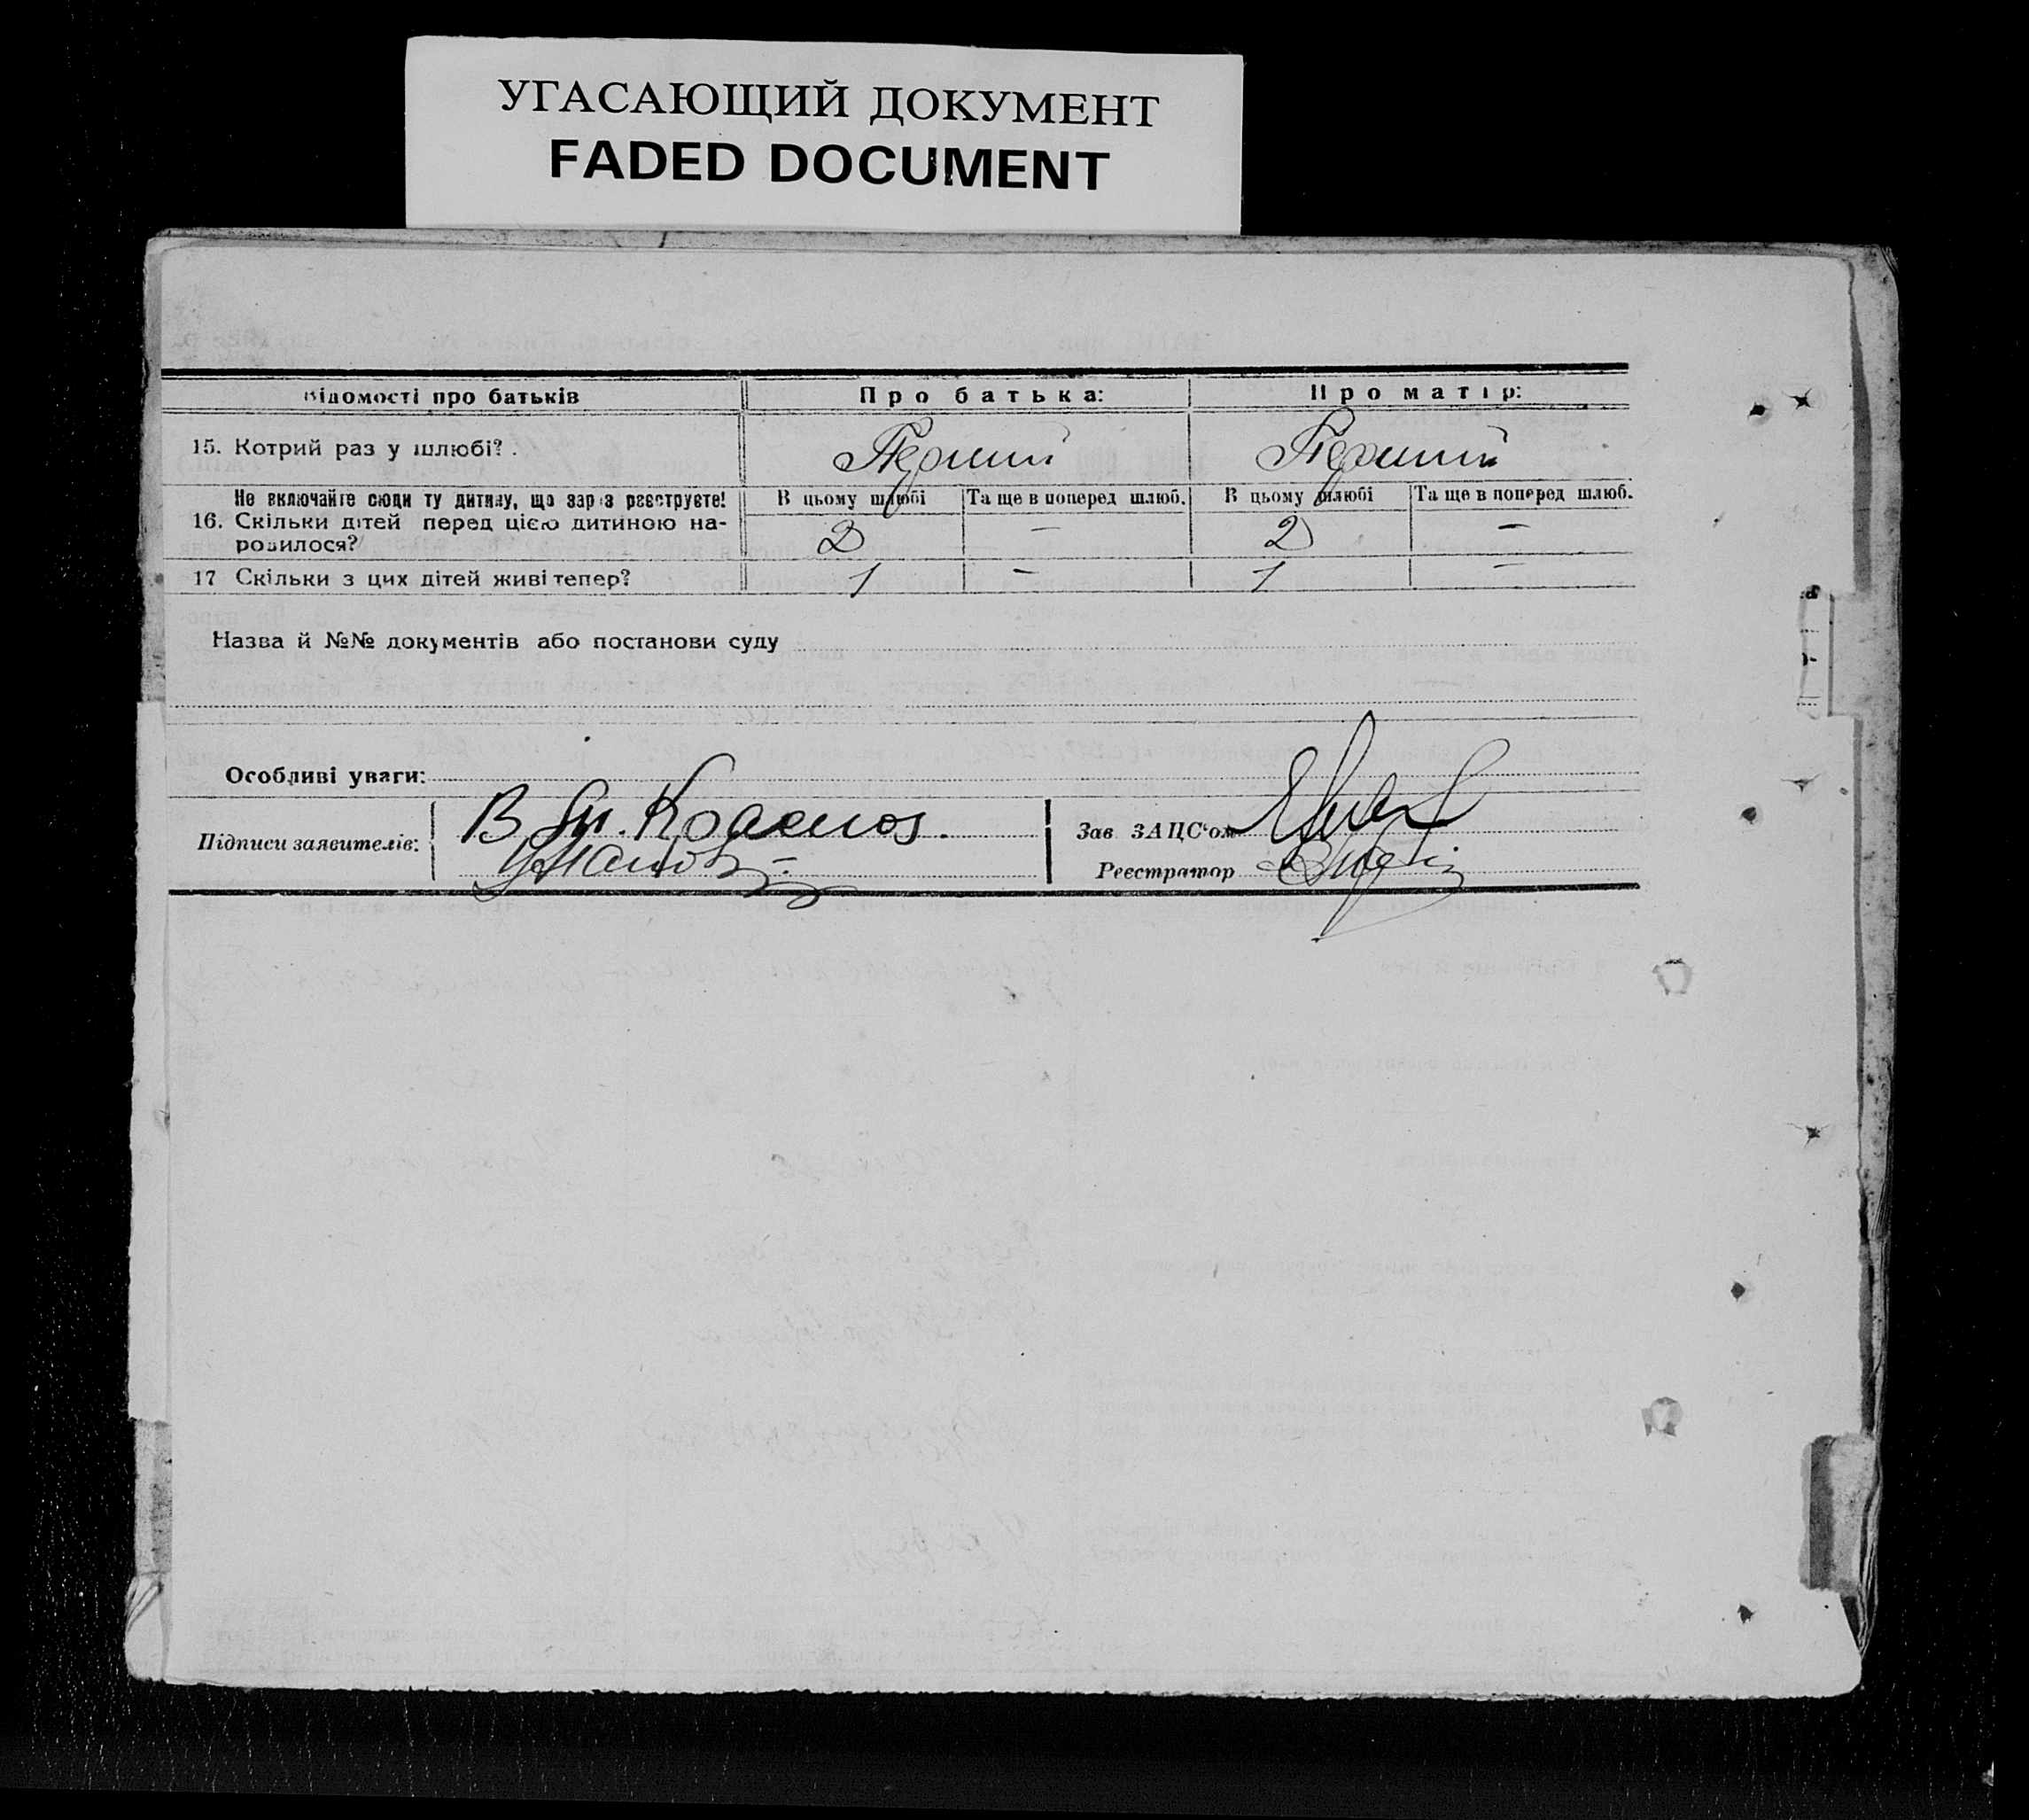 УГАСАЮЩИЙ ДОКУМЕНТ
FADED DOCUMENT
Відомості про батьків
Про батька:
Про матір:
15. Котрий раз у шлюбі?
Перший
Перший
Не включайте сюди ту дитину, що зараз реєструєте!
В цьому шлюбі
Та ще в поперед шлюб.
В цьому шлюбі
Та ще в поперед шлюб.
16. Скільки дітей перед цією дитиною на-
родилося?
2
—
2
—
17 Скільки з цих дітей живі тепер?
1
—
1
—
Назва й №№ документів або постанови суду
Особливі уваги:
Підписи заявителів:
Зав. ЗАЦС'ом
Реєстратор